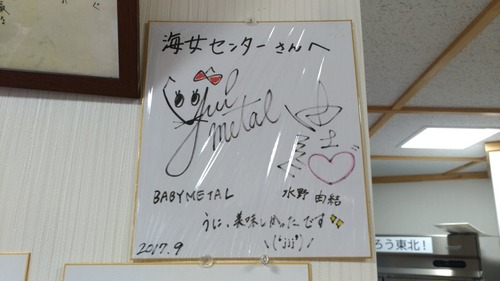 海女センターさんへ
Yui
metal
BABYMETAL
水野 由結
うに、美味しかったです
\(*´ʖ`*)/
2017.9
ろう東北!